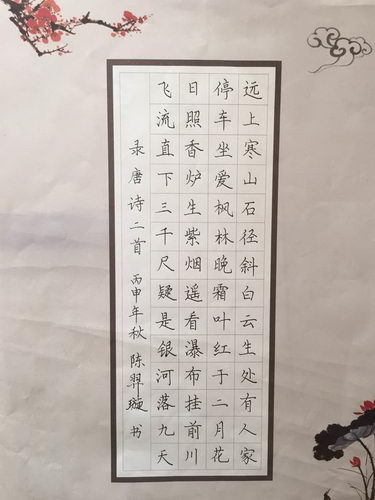 远上寒山石径斜白云生处有人家
停车坐爱枫林晚霜叶红于二月花
日照香炉生紫烟遥看瀑布挂前川
飞流直下三千尺疑是银河落九天
录唐诗二首 丙申年秋 陈羿璇 书